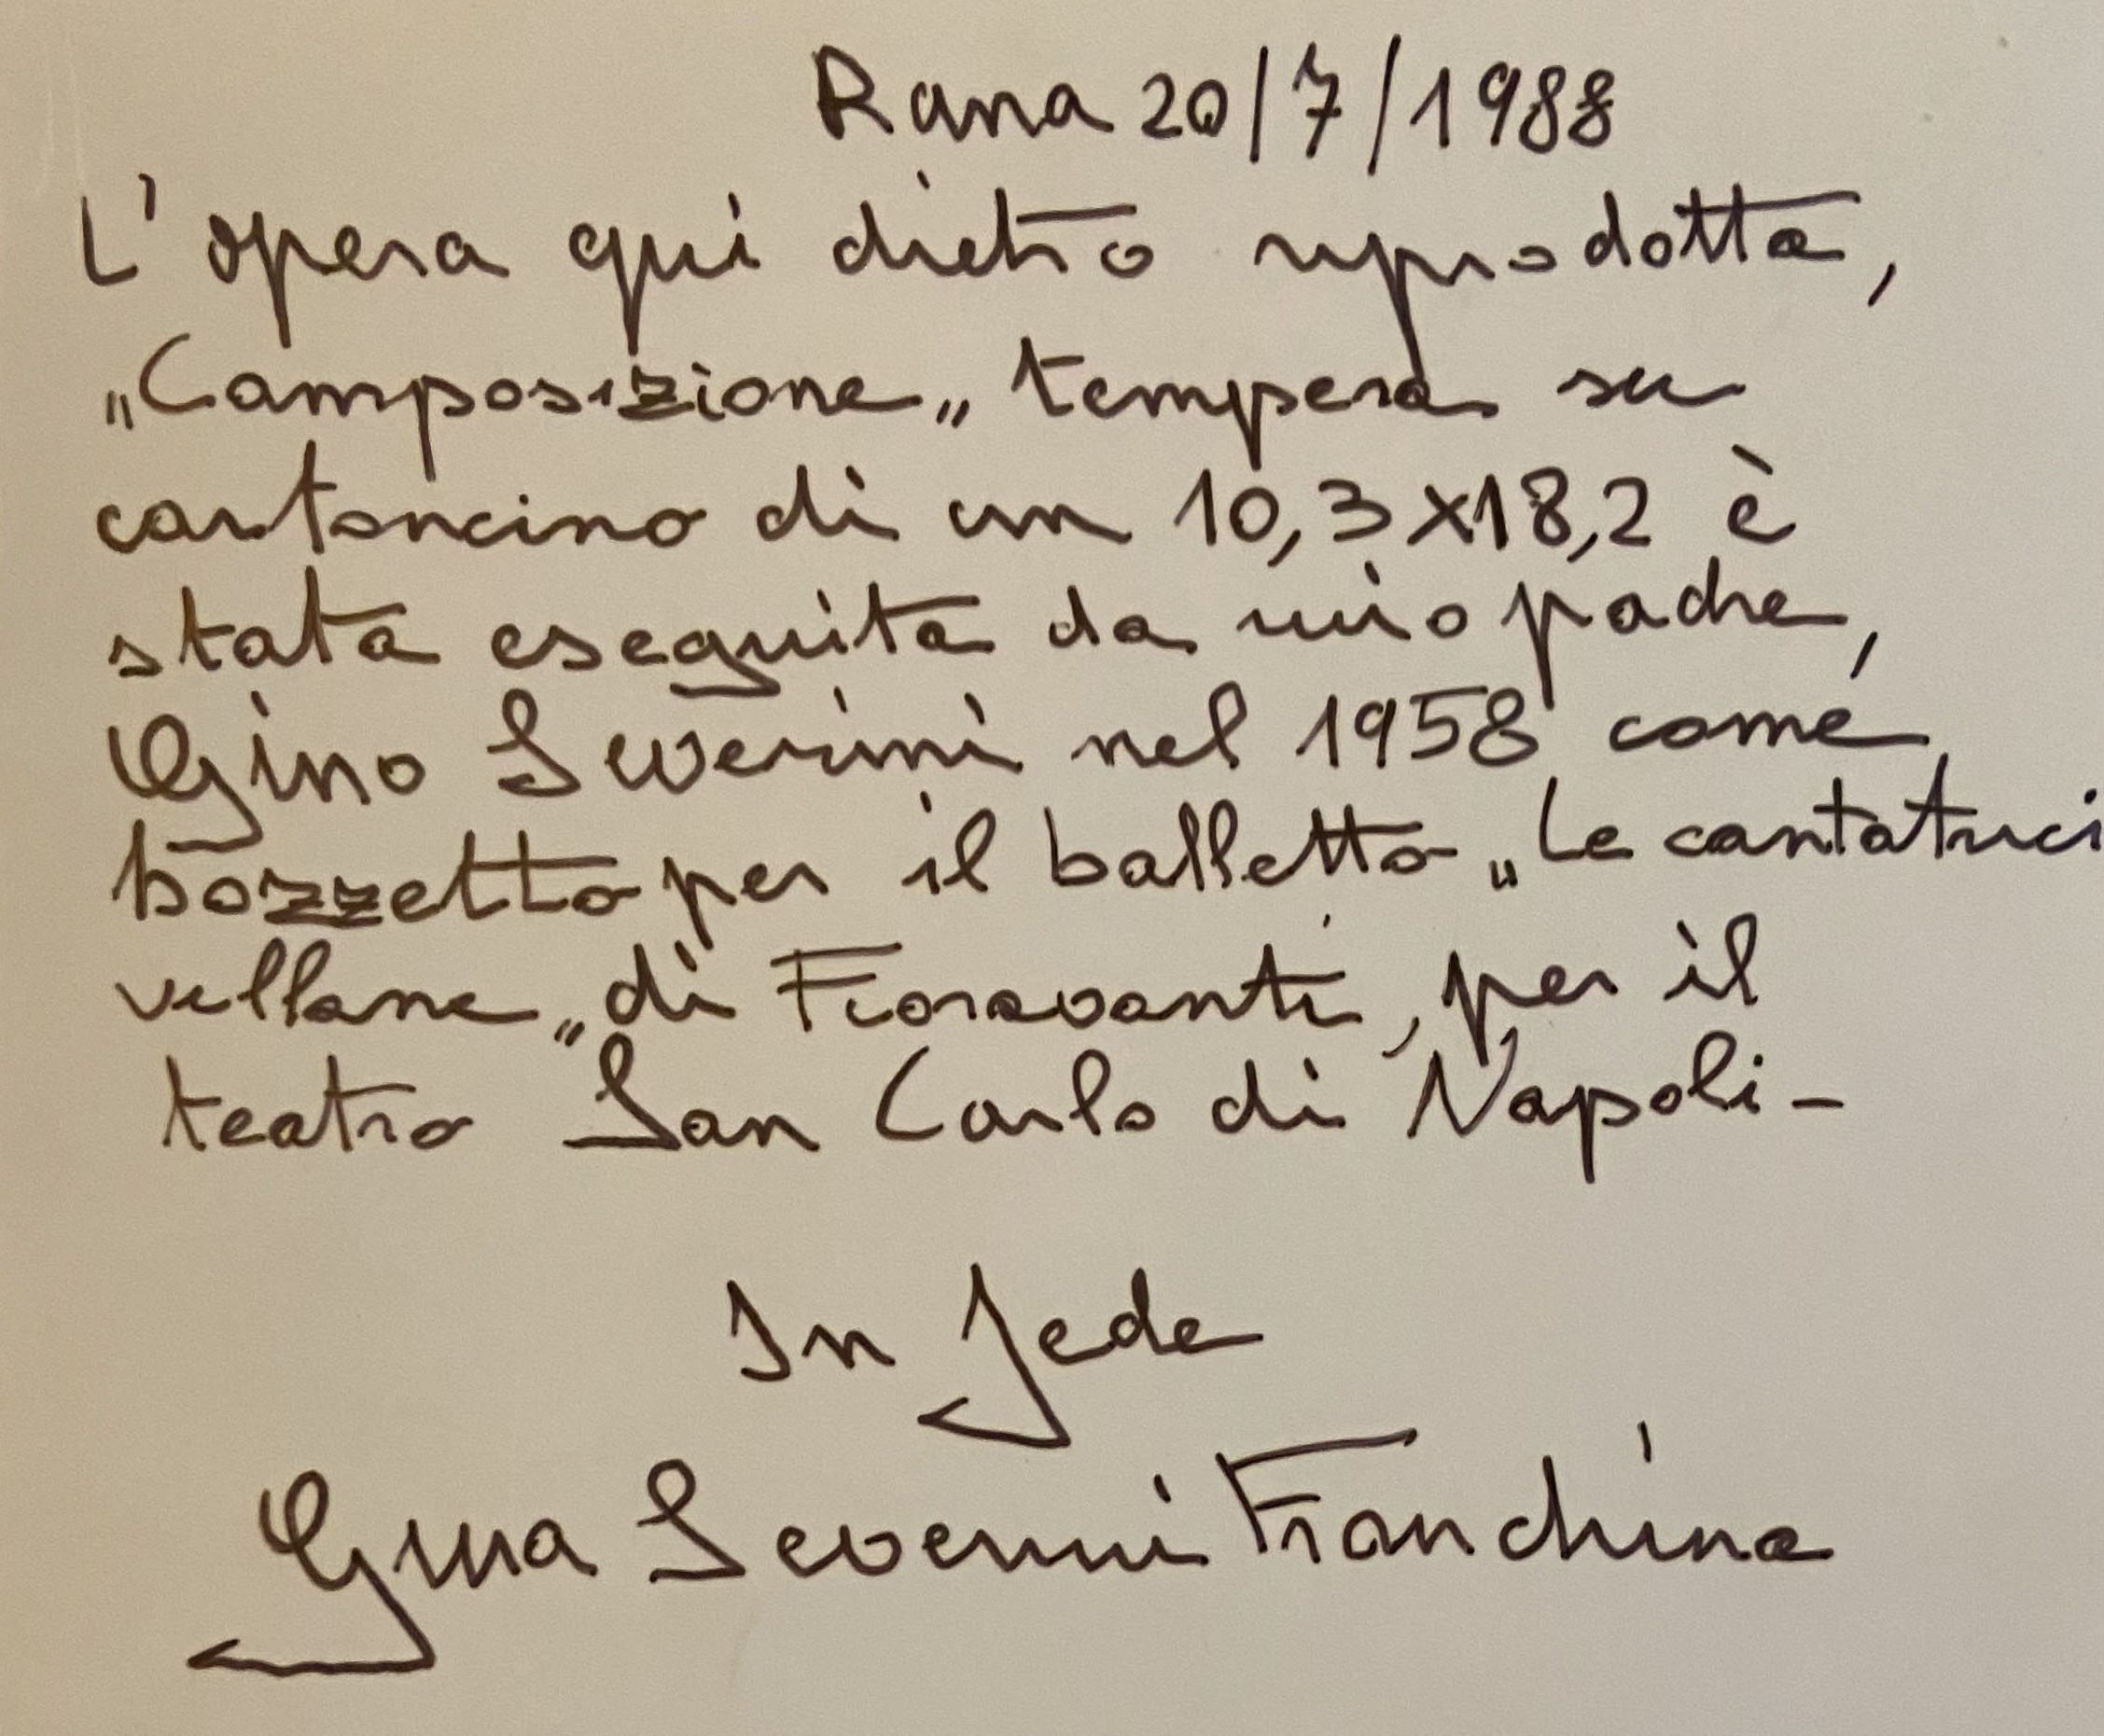 Roma 20/7/1988
L'opera qui dietro riprodotta,
"Composizione" tempera su
cartoncino di cm 10,3x18,2 è
stata eseguita da mio padre,
Gino Severini nel 1958 come
bozzetto per il balletto "Le cantatrici
villane" di Fioravanti, per il
teatro San Carlo di Napoli-
In fede
Gina Severini Franchina